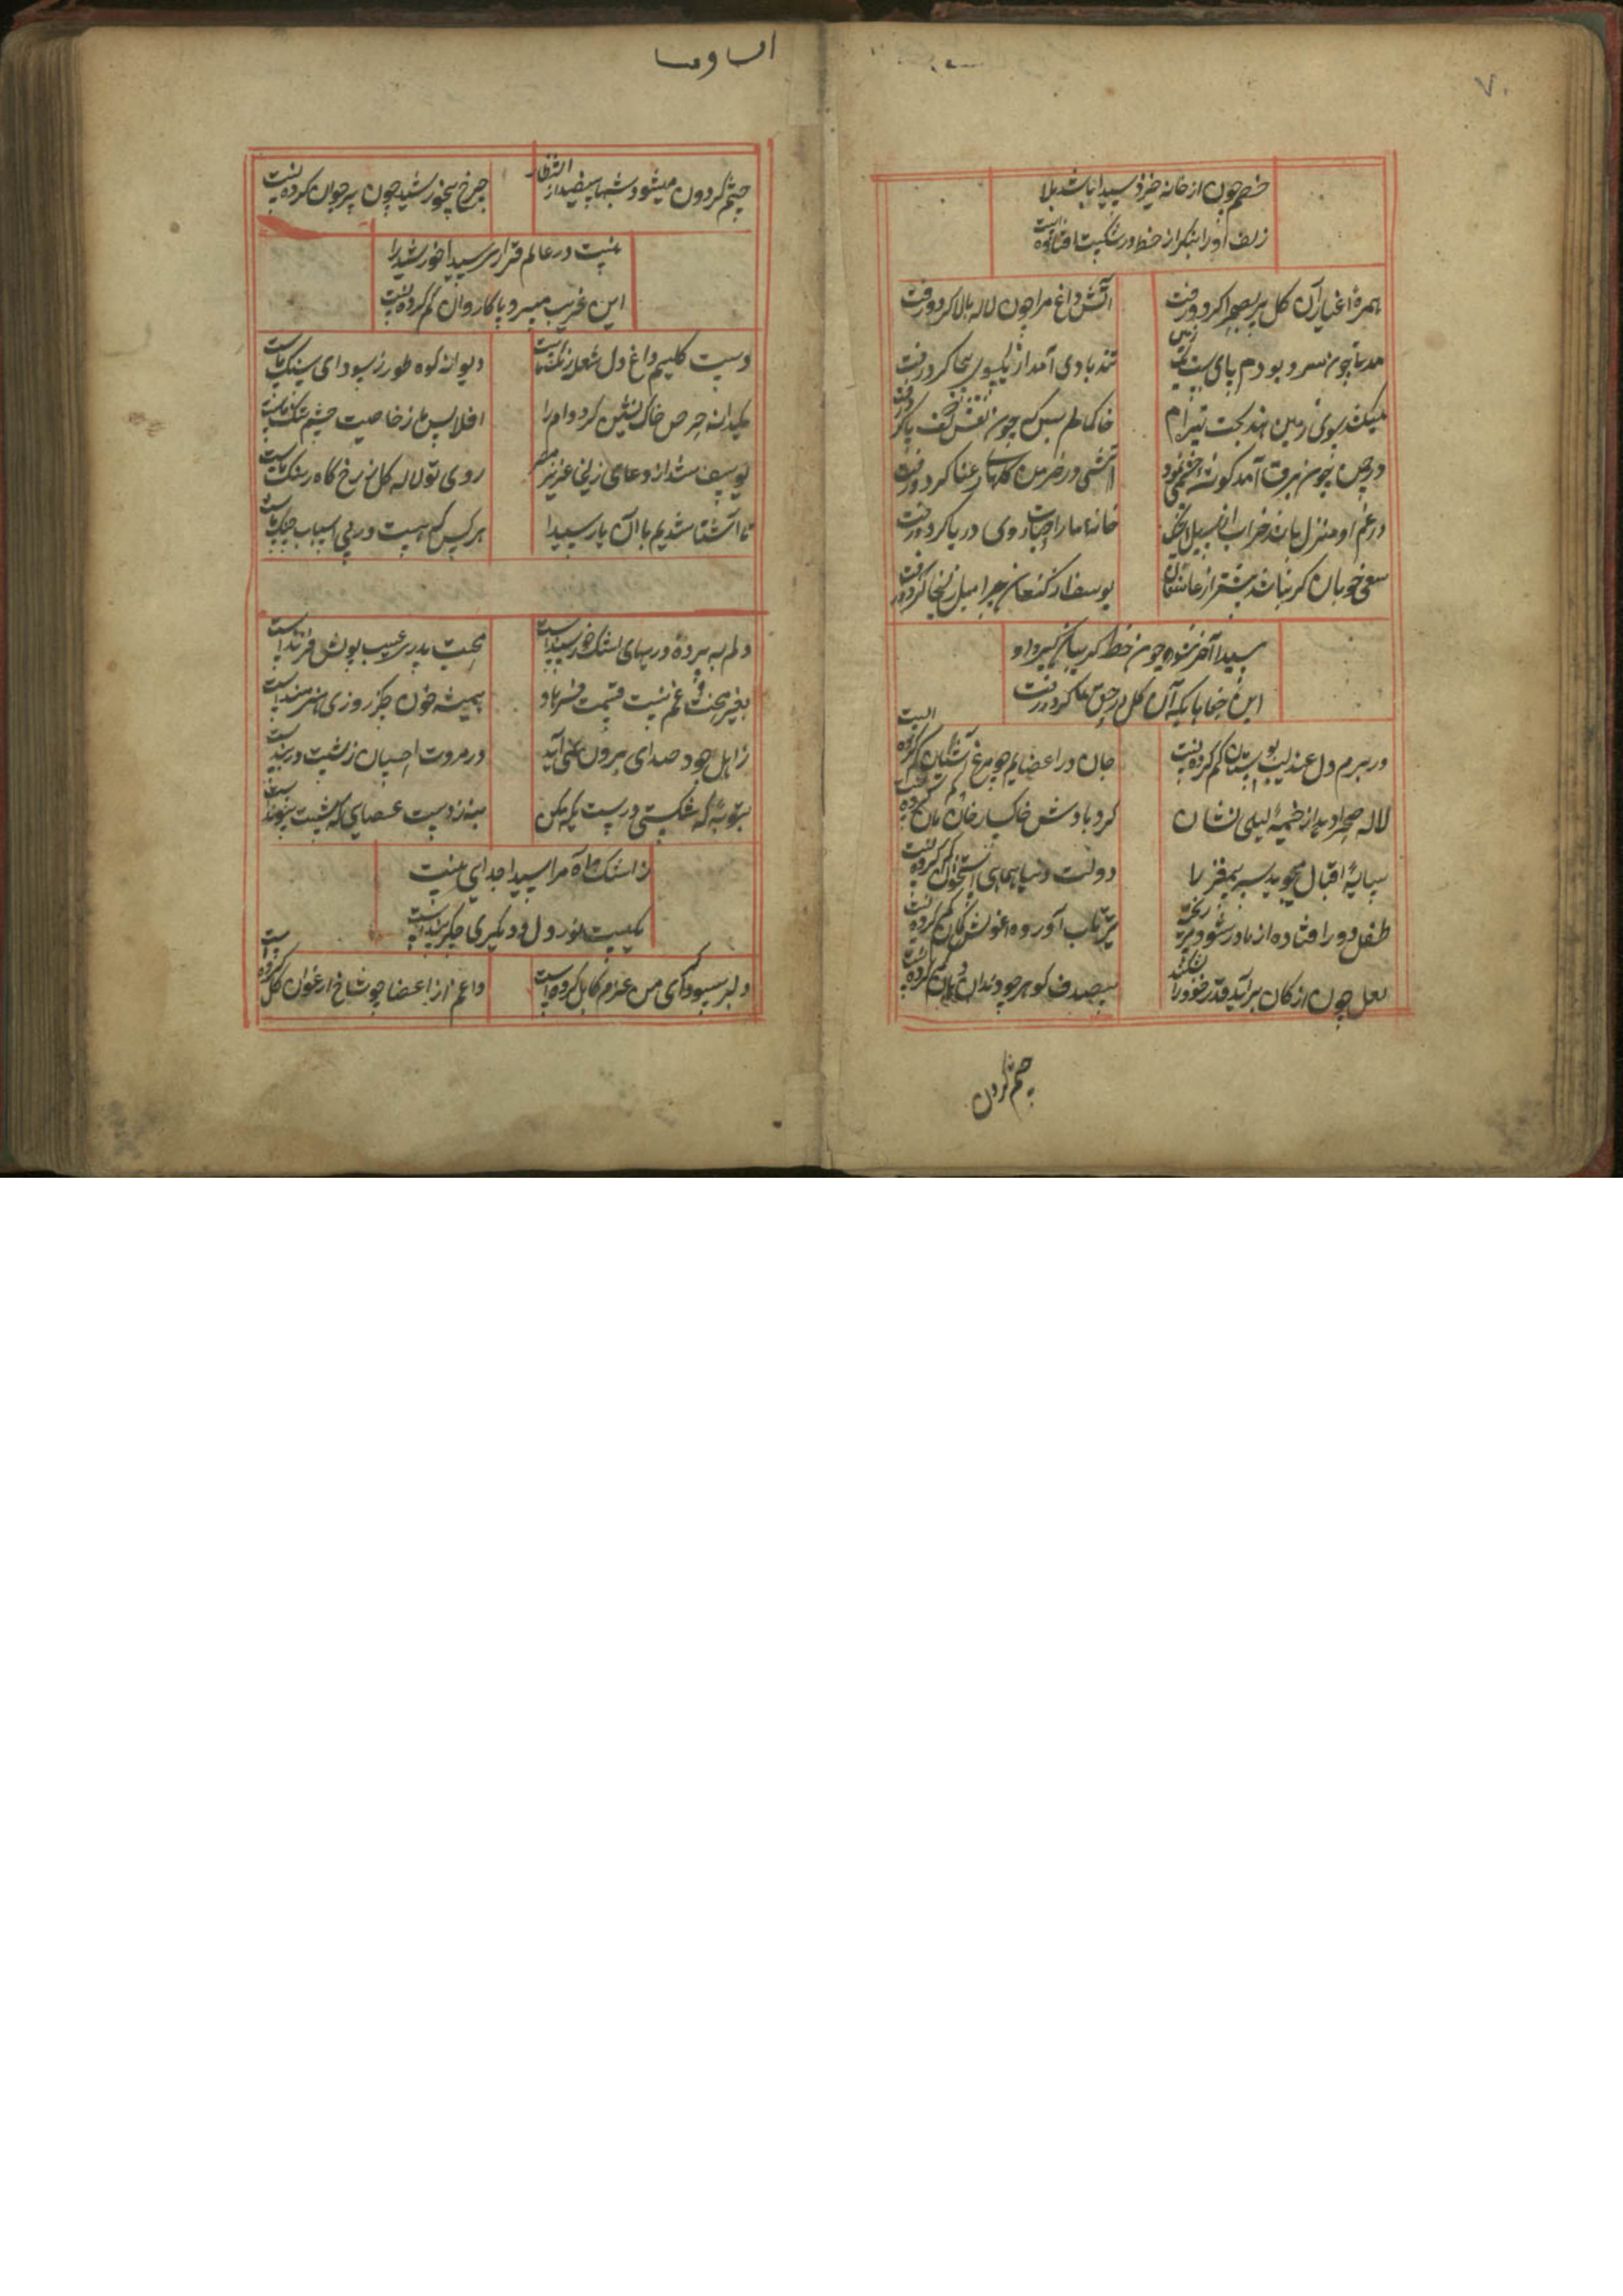 ۷۰
خصم چون از خانه خیزد سیدا باشد بلا
زلف او را بنگر از خط در شکست افتاده است
همره اغیار آن گل سیر صحرا کرد و رفت
آتش داغ مرا چون لاله بالا کرد و رفت
مدتی چون سرو بودم پای بند یک زمین
تند بادی آمد از یکسوی بیجا کرد و رفت
میکند بوی زمین هند بخت تیره ام
خاکمالم بس که چون نقش کف پا کرد و رفت
در چمن چون برق آمد گوشه چشمی نمود
آتشی در خرمن گلهای رعنا کرد و رفت
در غم او منزل ما شد خراب از سیل اشک
خانه ما را حباب روی دریا کرد و رفت
سعی خوبان گر نباشد بیشتر از عاشقان
یوسف از کنعان چرا میل زلیخا کرد و رفت
سیدا آخر شود چون خط گریبان گیر او
این جفاهایی که آن گل در حق ما کرد و رفت
در برم دل عندلیب بوستان گم کرده ایست
جان در اعضایم چو مرغ آشیان گم کرده ایست
لاله صحرا دید از خیمه لیلی نشان
گرد بادش خاک
سایه اقبال میجوید سر بیمغز را
دولت دنیا همای استخوان گم کرده ایست
طفل دور افتاده از مادر شود
تیر تاب آورده آغوش کمان گم کرده ایست
لعل چون از کان برآید قدر خود را بشکند
بیصدف گوهر چو دندان دهان گم کرده ایست
چشم گردون
چشم گردون میشود شبها سفید از انتظار
چرخ بیخورشید چون پیر جوان گم کرده ایست
نیست در عالم قراری سیدا خورشید را
این غریب میرود پا کاروان گم کرده ایست
دست کلیم داغ دل شعله رنگ ماست
دیوانه کوه طور ز سودای سنگ ماست
یکدانه حرص خاک نشین کرد دام را
افلاس ما ز خاصیت چشم تنگ ماست
یوسف شد از دعای زلیخا عزیز مصر
روی تو لاله گل نرخ گاه رنگ ماست
تا آشنا شدیم با آن یار سیدا
هر کس که هست در پی اسباب جنگ ماست
دلم به پرده دریهای اشک خورسند است
محبت پدری عیب پوش فرزند است
بغیر محنت و غم نیست قسمت فرهاد
همیشه خون جگر روزی هنرمند است
ز اهل جود صدای برون نمی آید
در مروت احسان
بتوبه که شکستی درست تکیه مکن
بیندازد دست عصای که شکست پیوند است
ز اشک و آه مرا سیدا جدایی نیست
یکیست نور دل و دیگری جگربند است
دلبر سودای من عزم کابل کرده است
داغم از اعضا چو شاخ ارغوان گل کرده است